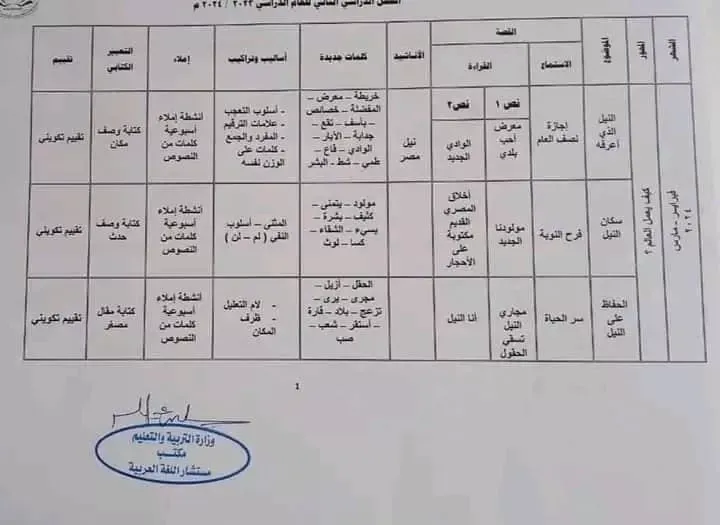 الفصل الدراسي الثاني للعام الدراسي ٢٠٢٣ / ٢٠٢٤ م
الشهر
المحور
الموضوع
القصة
الاستماع
القراءة
نص ١
نص ٢
الأناشيد
كلمات جديدة
أساليب وتراكيب
إملاء
التعبير
الكتابي
تقييم
فبراير – مارس
٢٠٢٤
كيف يعمل العالم ؟
النيل
الذي
أعرفه
إجازة
نصف العام
معرض
أحب
بلدي
الوادي
الجديد
نيل
مصر
خريطة – معرض –
المفضلة – خصائص
– يأسف – تقع –
جذابة – الآبار –
الوادي – قاع –
طمي – شط - البشر
- أسلوب التعجب
- علامات الترقيم
- المفرد والجمع
- كلمات على
الوزن نفسه
أنشطة إملاء
أسبوعية
كلمات من
النصوص
كتابة وصف
مكان
تقييم تكويني
سكان
النيل
فرح النوبة
مولودنا
الجديد
أخلاق
المصري
القديم
مكتوبة
على
الأحجار
مولود – يتمنى –
كثيف – بشرة –
يسيء – الشقاء –
كسا – لوث
المثنى – أسلوب
النفي ( لم – لن )
أنشطة إملاء
أسبوعية
كلمات من
النصوص
كتابة وصف
حدث
تقييم تكويني
الحفاظ
على
النيل
سر الحياة
مجاري
النيل
تسقي
الحقول
أنا النيل
الحقل – أزيل –
مجرى – يرى –
تزعج – بلاد – قارة
– أستقر – شعب –
صب
- لام التعليل
- ظرف
المكان
أنشطة إملاء
أسبوعية
كلمات من
النصوص
كتابة مقال
مصغر
تقييم تكويني
1
وزارة التربية والتعليم
مكتب
مستشار اللغة العربية